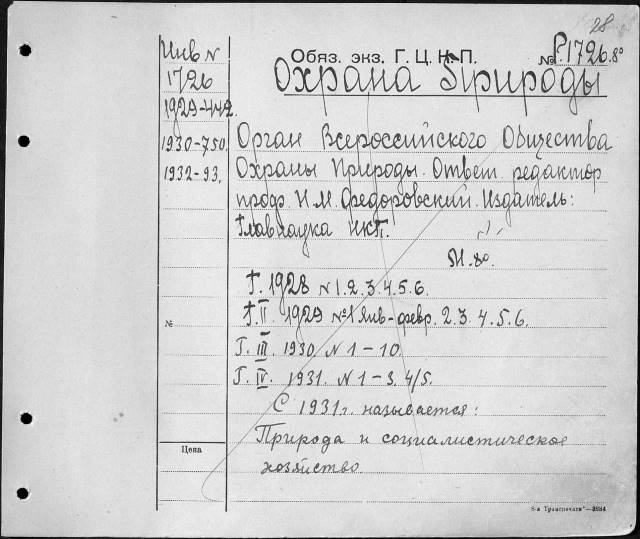 28
Инв N
1726
1929-442.
1930-750.
1932-93.
№
Цена
Обяз. экз. Г. Ц. К. П.
№ Р.1726.8º
Охрана Природы
Орган Всероссийского Общества
Охраны Природы. Ответ. редактор
проф. Н. М. Федоровский. Издатель:
Главнаука НКП.
М. 8º.
Г. 1928 N 1. 2. 3. 4. 5. 6.
Г. II. 1929 № 1 Янв-февр. 2. 3. 4. 5. 6.
Г. III. 1930. N 1-10.
Г. IV. 1931. N 1-3. 4/5.
С 1931г. называется:
Природа и социалистическое
хозяйство